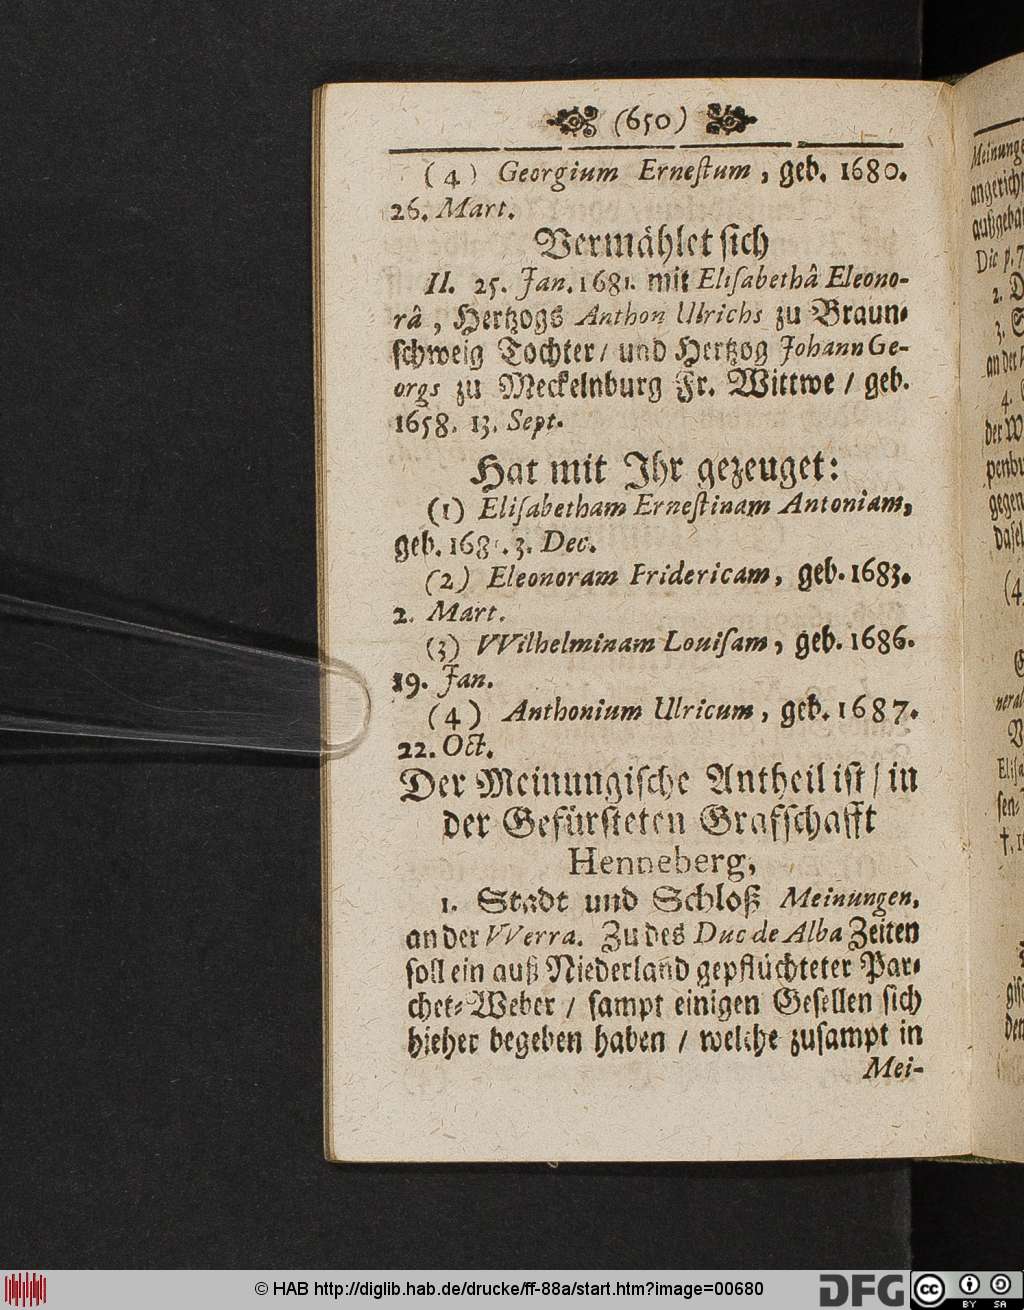 (650)
(4) Georgium Erneſtum, geb. 1680.
26. Mart.
Vermählet ſich
II. 25. Jan. 1681. mit Eliſabethâ Eleono-
râ, Hertzogs Anthon Ulrichs zu Braun-
ſchweig Tochter / und Hertzog Johann Ge-
orgs zu Meckelnburg Fr. Wittwe / geb.
1658. 13. Sept.
Hat mit Ihr gezeuget:
(1) Eliſabetham Erneſtinam Antoniam,
geb. 3. Dec.
(2) Eleonoram Fridericam, geb. 1683.
2. Mart.
(3) VVilhelminam Louiſam, geb. 1686.
19. Jan.
(4) Anthonium Ulricum, geb. 1687.
22. Oct.
Der Meinungiſche Antheil iſt / in
der Gefürſteten Grafſchafft
Henneberg,
1. Stadt und Schloß Meinungen,
an der VVerra. Zu des Duc de Alba Zeiten
ſoll ein auß Niederland gepflüchteter Par-
chet-Weber / ſampt einigen Geſellen ſich
hieher begeben haben / welche zuſampt in
Mei-
Die p. 7
2. D
3. S
an der
4.
der W
gegen
(4
© HAB http://diglib.hab.de/drucke/ff-88a/start.htm?image=00680
DFG
cc
BY SA